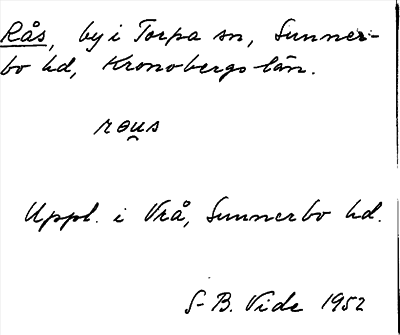 Rås, by i Torpa sn, Sunner-
bo hd, Kronobergs län.
rau̯s
Uppl. i Vrå, Sunnerbo hd.
S-B. Vide 1952